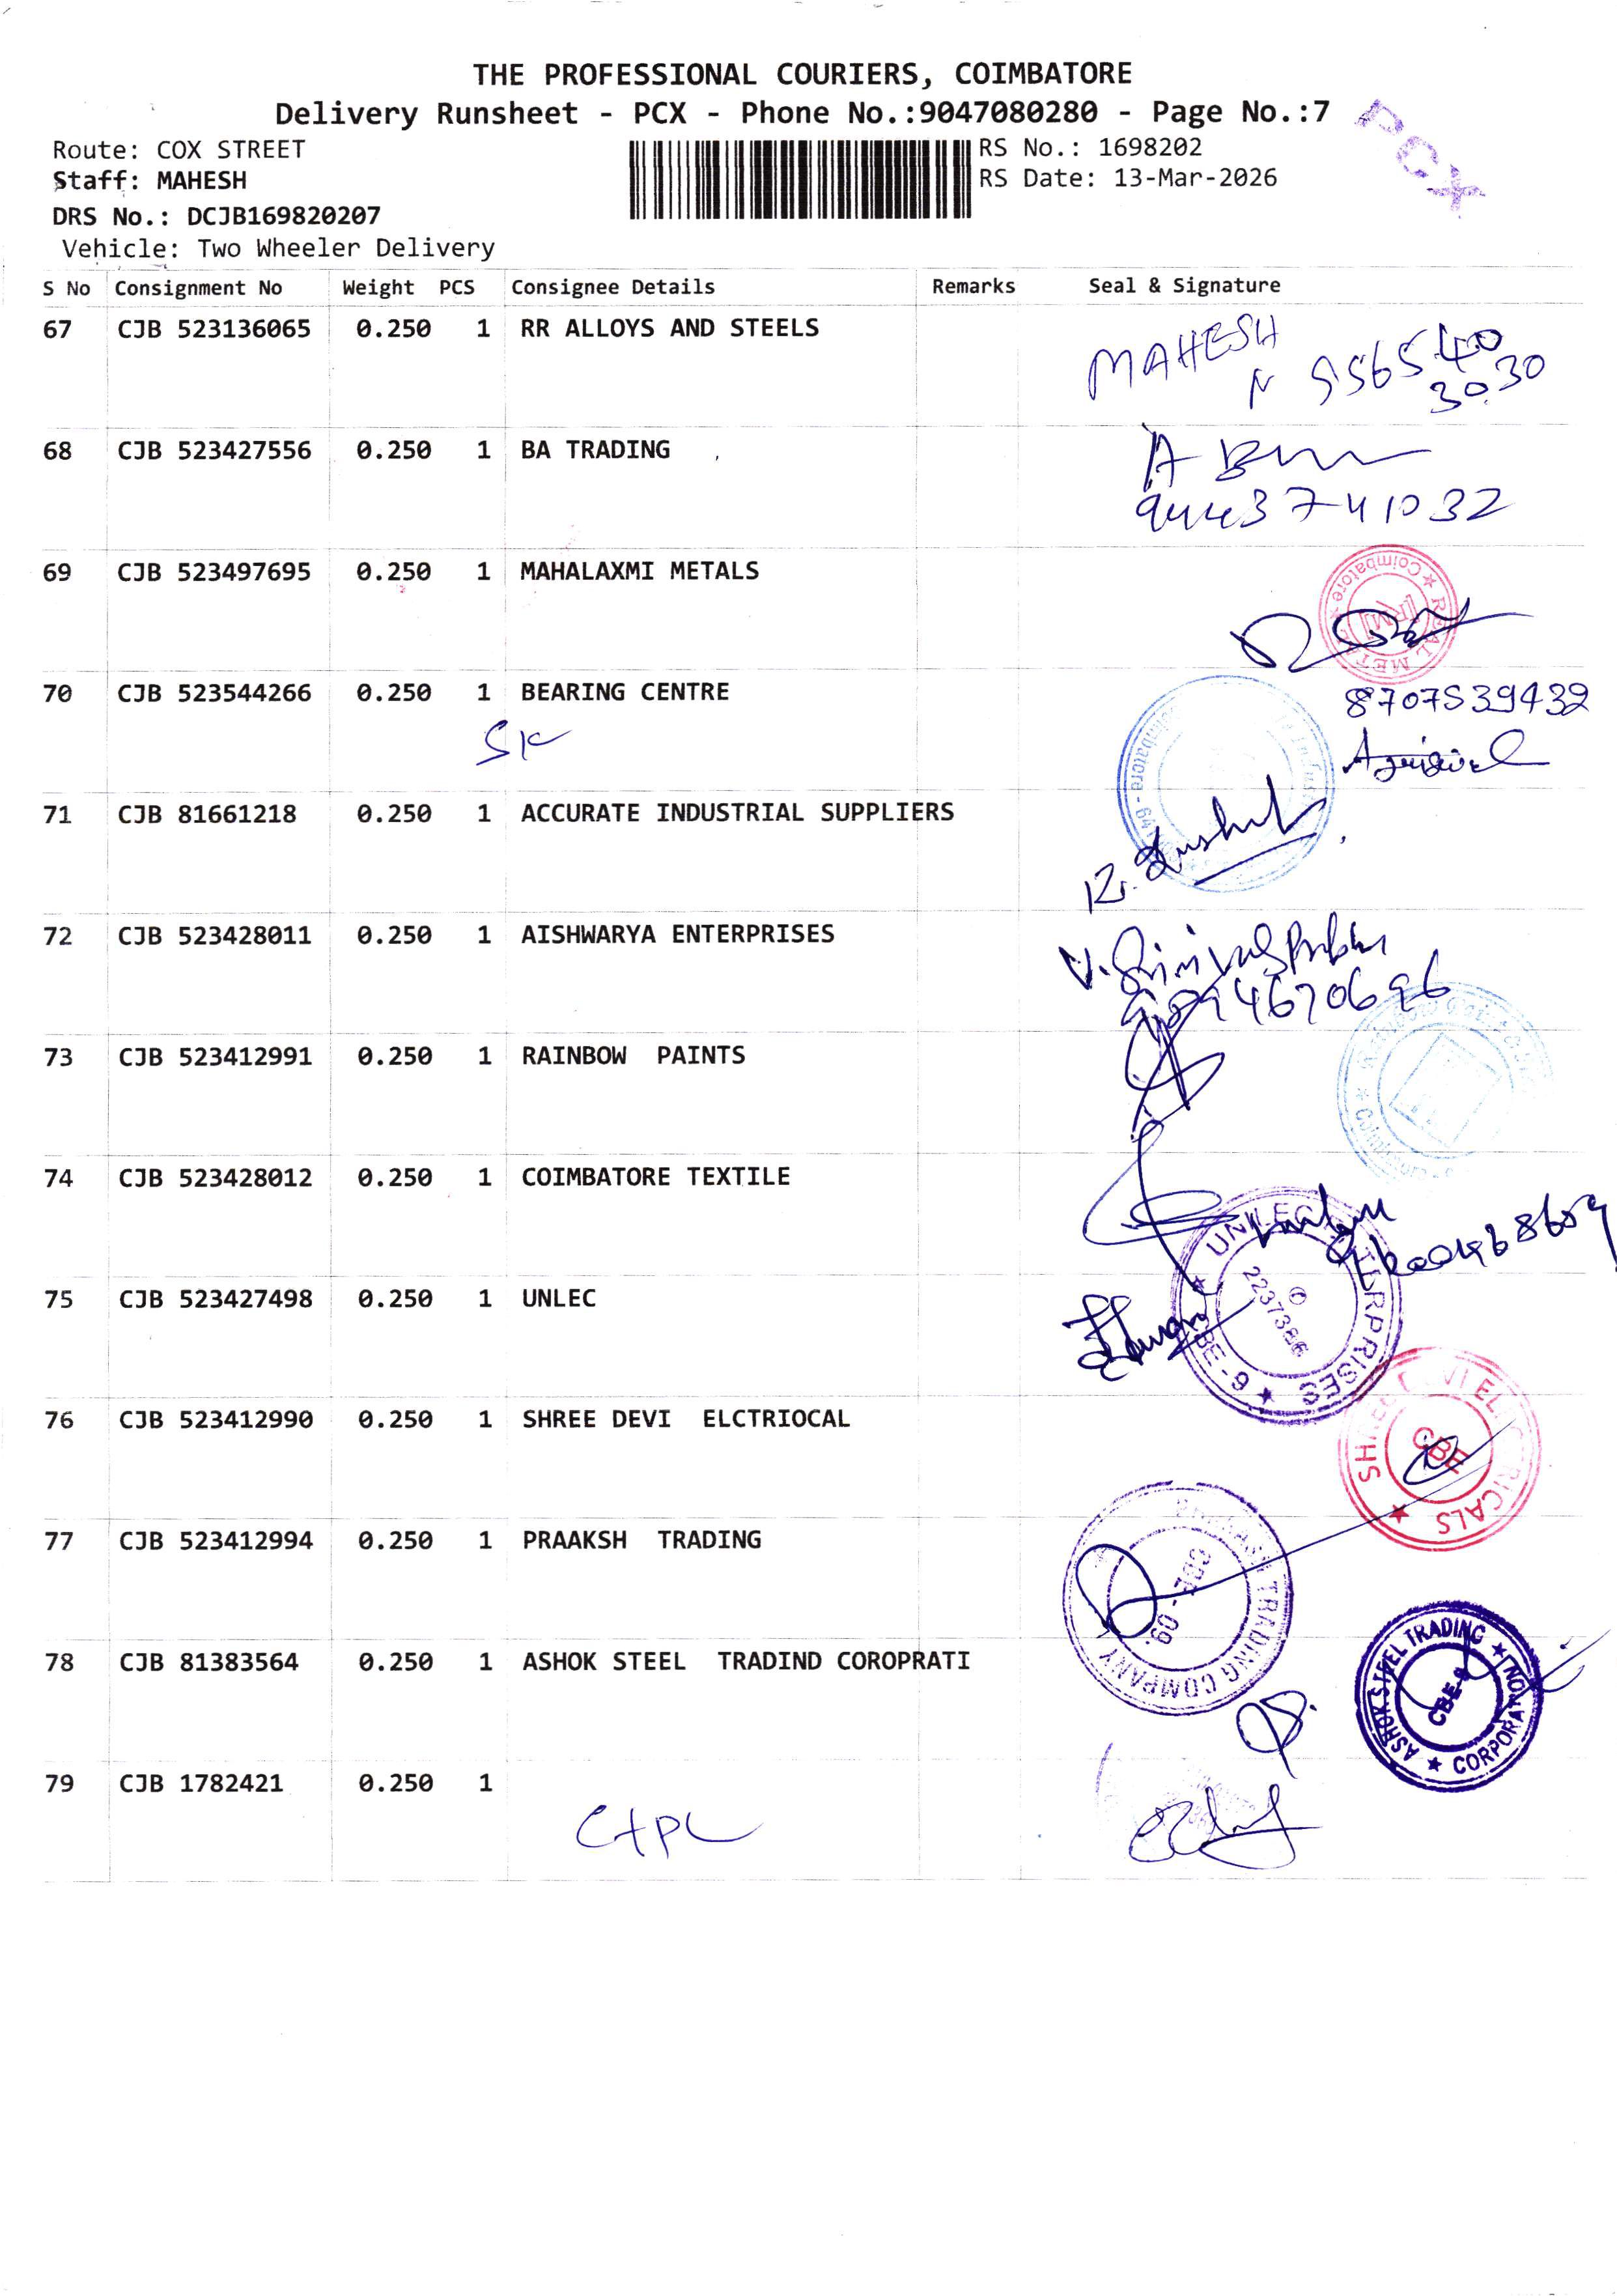 THE PROFESSIONAL COURIERS, COIMBATORE
Delivery Runsheet - PCX - Phone No.:9047080280 - Page No.:7
PCX
Route: COX STREET
RS No.: 1698202
Staff: MAHESH
RS Date: 13-Mar-2026
DRS No.: DCJB169820207
Vehicle: Two Wheeler Delivery
S No Consignment No Weight PCS Consignee Details Remarks Seal & Signature
67 CJB 523136065 0.250 1 RR ALLOYS AND STEELS
MAHESH
N 956540
3030
68 CJB 523427556 0.250 1 BA TRADING
9443741032
69 CJB 523497695 0.250 1 MAHALAXMI METALS
Coimbatore
70 CJB 523544266 0.250 1 BEARING CENTRE
8707539432
SK
71 CJB 81661218 0.250 1 ACCURATE INDUSTRIAL SUPPLIERS
72 CJB 523428011 0.250 1 AISHWARYA ENTERPRISES
73 CJB 523412991 0.250 1 RAINBOW PAINTS
74 CJB 523428012 0.250 1 COIMBATORE TEXTILE
75 CJB 523427498 0.250 1 UNLEC
UNLEC ENTERPRISES
CBE-9
76 CJB 523412990 0.250 1 SHREE DEVI ELCTRIOCAL
SHREE DEVI ELECTRICALS
CBE
77 CJB 523412994 0.250 1 PRAAKSH TRADING
TRADING COMPANY
CBE-09.
78 CJB 81383564 0.250 1 ASHOK STEEL TRADIND COROPRATI
ASHOK STEEL TRADING CORPORATION
CBE-9
79 CJB 1782421 0.250 1
CTPL